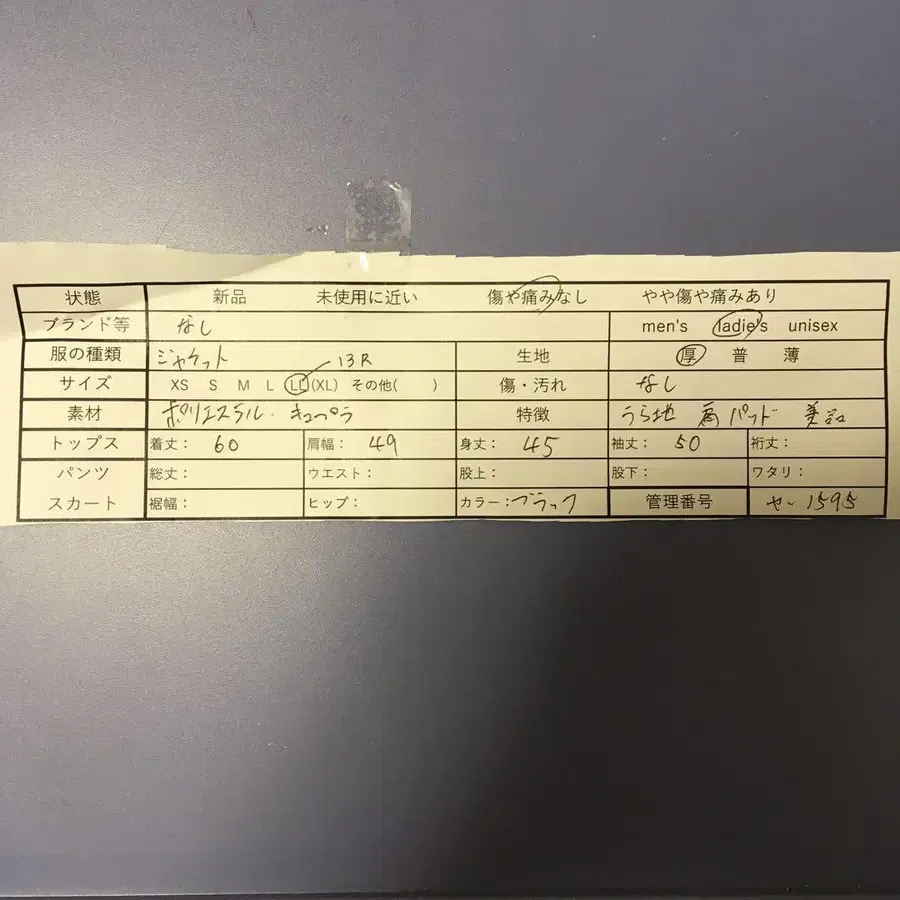 状態 新品 未使用に近い 傷や痛みなし やや傷や痛みあり
ブランド等 なし men's ladie's unisex
服の種類 ジャケット 13R 生地 厚 普 薄
サイズ XS S M L LL(XL) その他( ) 傷・汚れ なし
素材 ポリエステル・キュプラ 特徴 うら地 肩パッド 美品
トップス 着丈： 60 肩幅： 49 身丈： 45 袖丈： 50 裄丈：
パンツ 総丈： ウエスト： 股上： 股下： ワタリ：
スカート 裾幅： ヒップ： カラー：ブラック 管理番号 1595